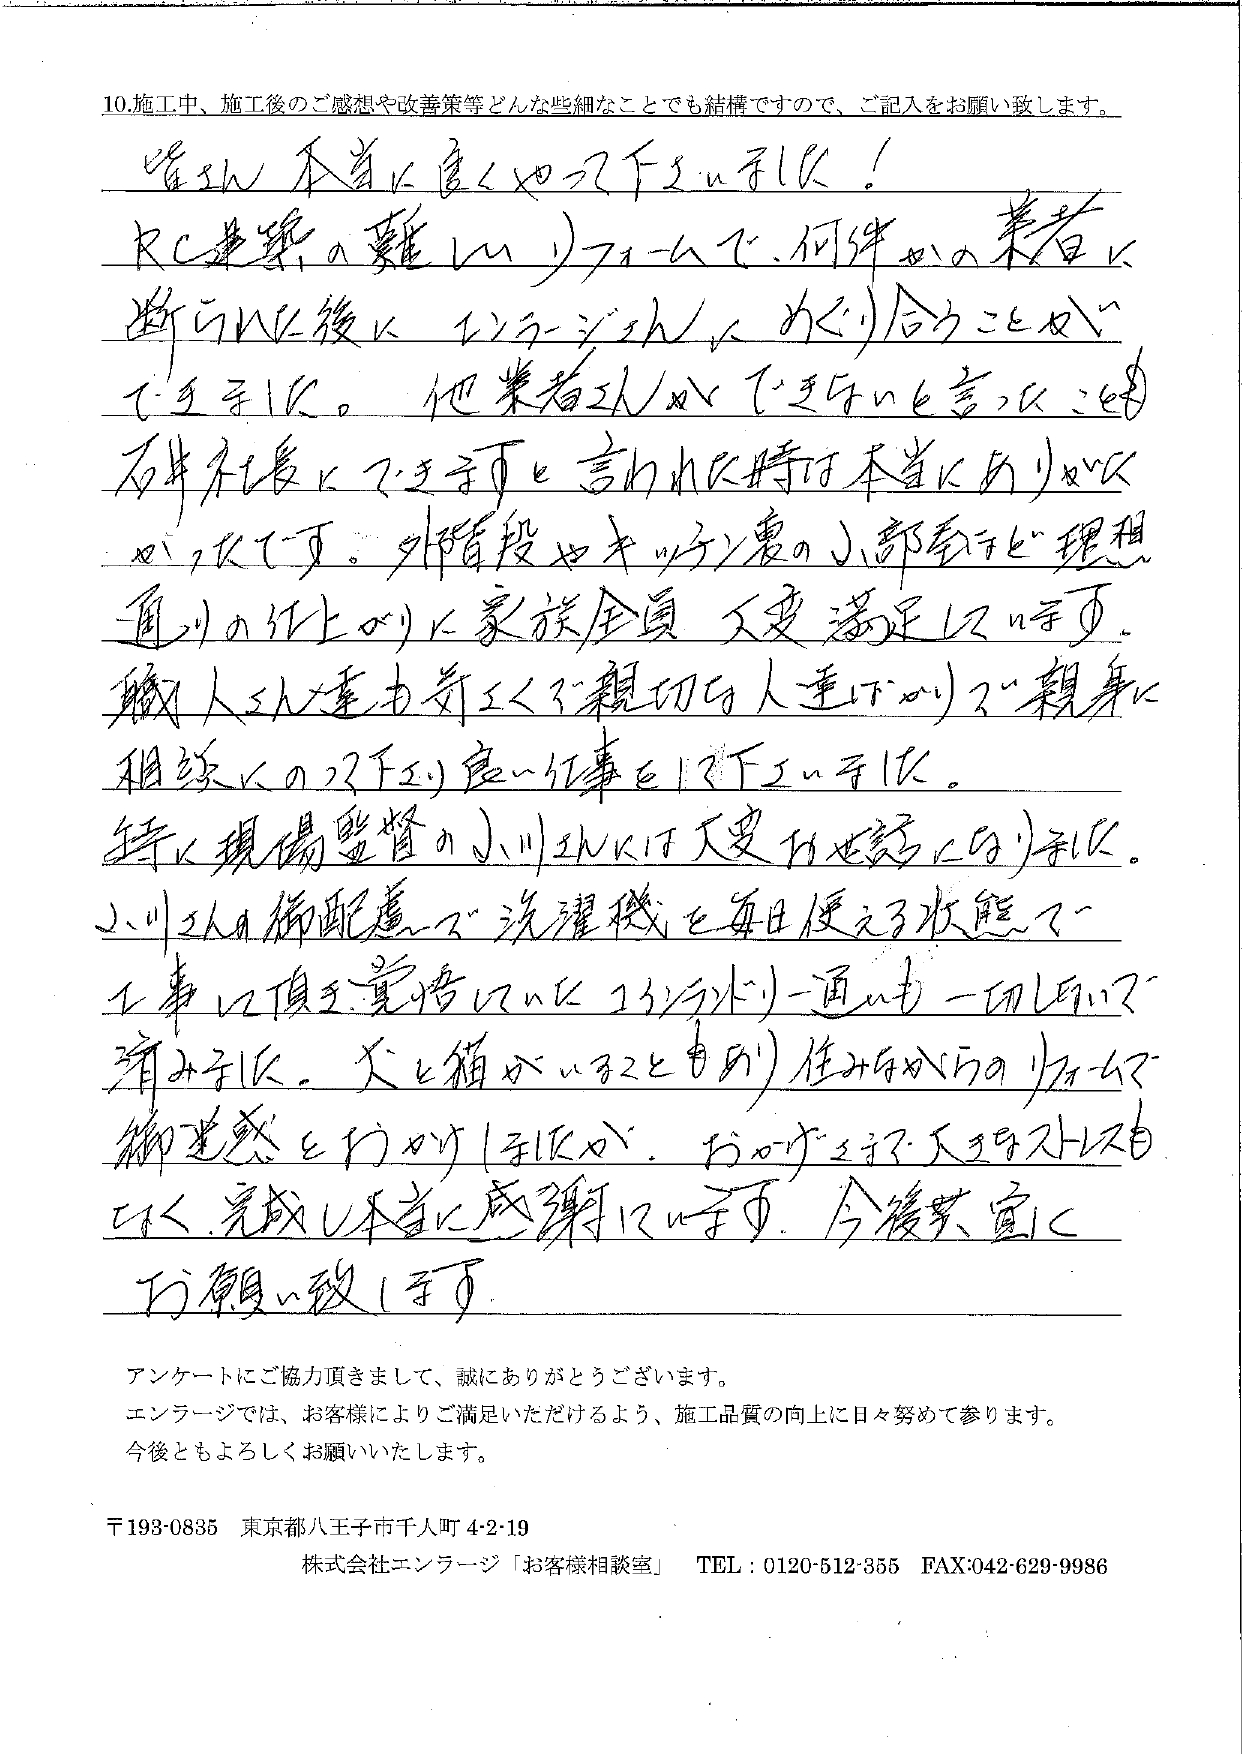 10.施工中、施工後のご感想や改善策等どんな些細なことでも結構ですので、ご記入をお願い致します。
皆さん 本当に良くやって下さいました!
RC建築の難しい リフォームで、何件かの業者に
断られた後に エンラージさんに めぐり合うことが
できました。 他業者さんが できないと言ったことも
石井社長に できますと 言われた時は 本当にありがた
かったです。 外階段や キッチン裏の 小部屋など 理想
通りの仕上がりに 家族全員 大変 満足しています。
職人さん達も 気さくで 親切な人達ばかりで 親身に
相談にのって下さり 良い仕事をして下さいました。
特に 現場監督の 小川さんには 大変お世話になりました。
小川さんの御配慮で 洗濯機を毎日使える状態で
工事して頂き、覚悟していた コインランドリー通いも 一切しないで
済みました。 犬と猫がいることもあり 住みながらのリフォームで
御迷惑をおかけしましたが、 おかげさまで 大きなストレスも
なく、完成し 本当に 感謝しています。 今後共、宜しく
お願い致します
アンケートにご協力頂きまして、誠にありがとうございます。
エンラージでは、お客様によりご満足いただけるよう、施工品質の向上に日々努めて参ります。
今後ともよろしくお願いいたします。
〒193-0835 東京都八王子市千人町 4-2-19
株式会社エンラージ「お客様相談室」 TEL : 0120-512-355 FAX:042-629-9986